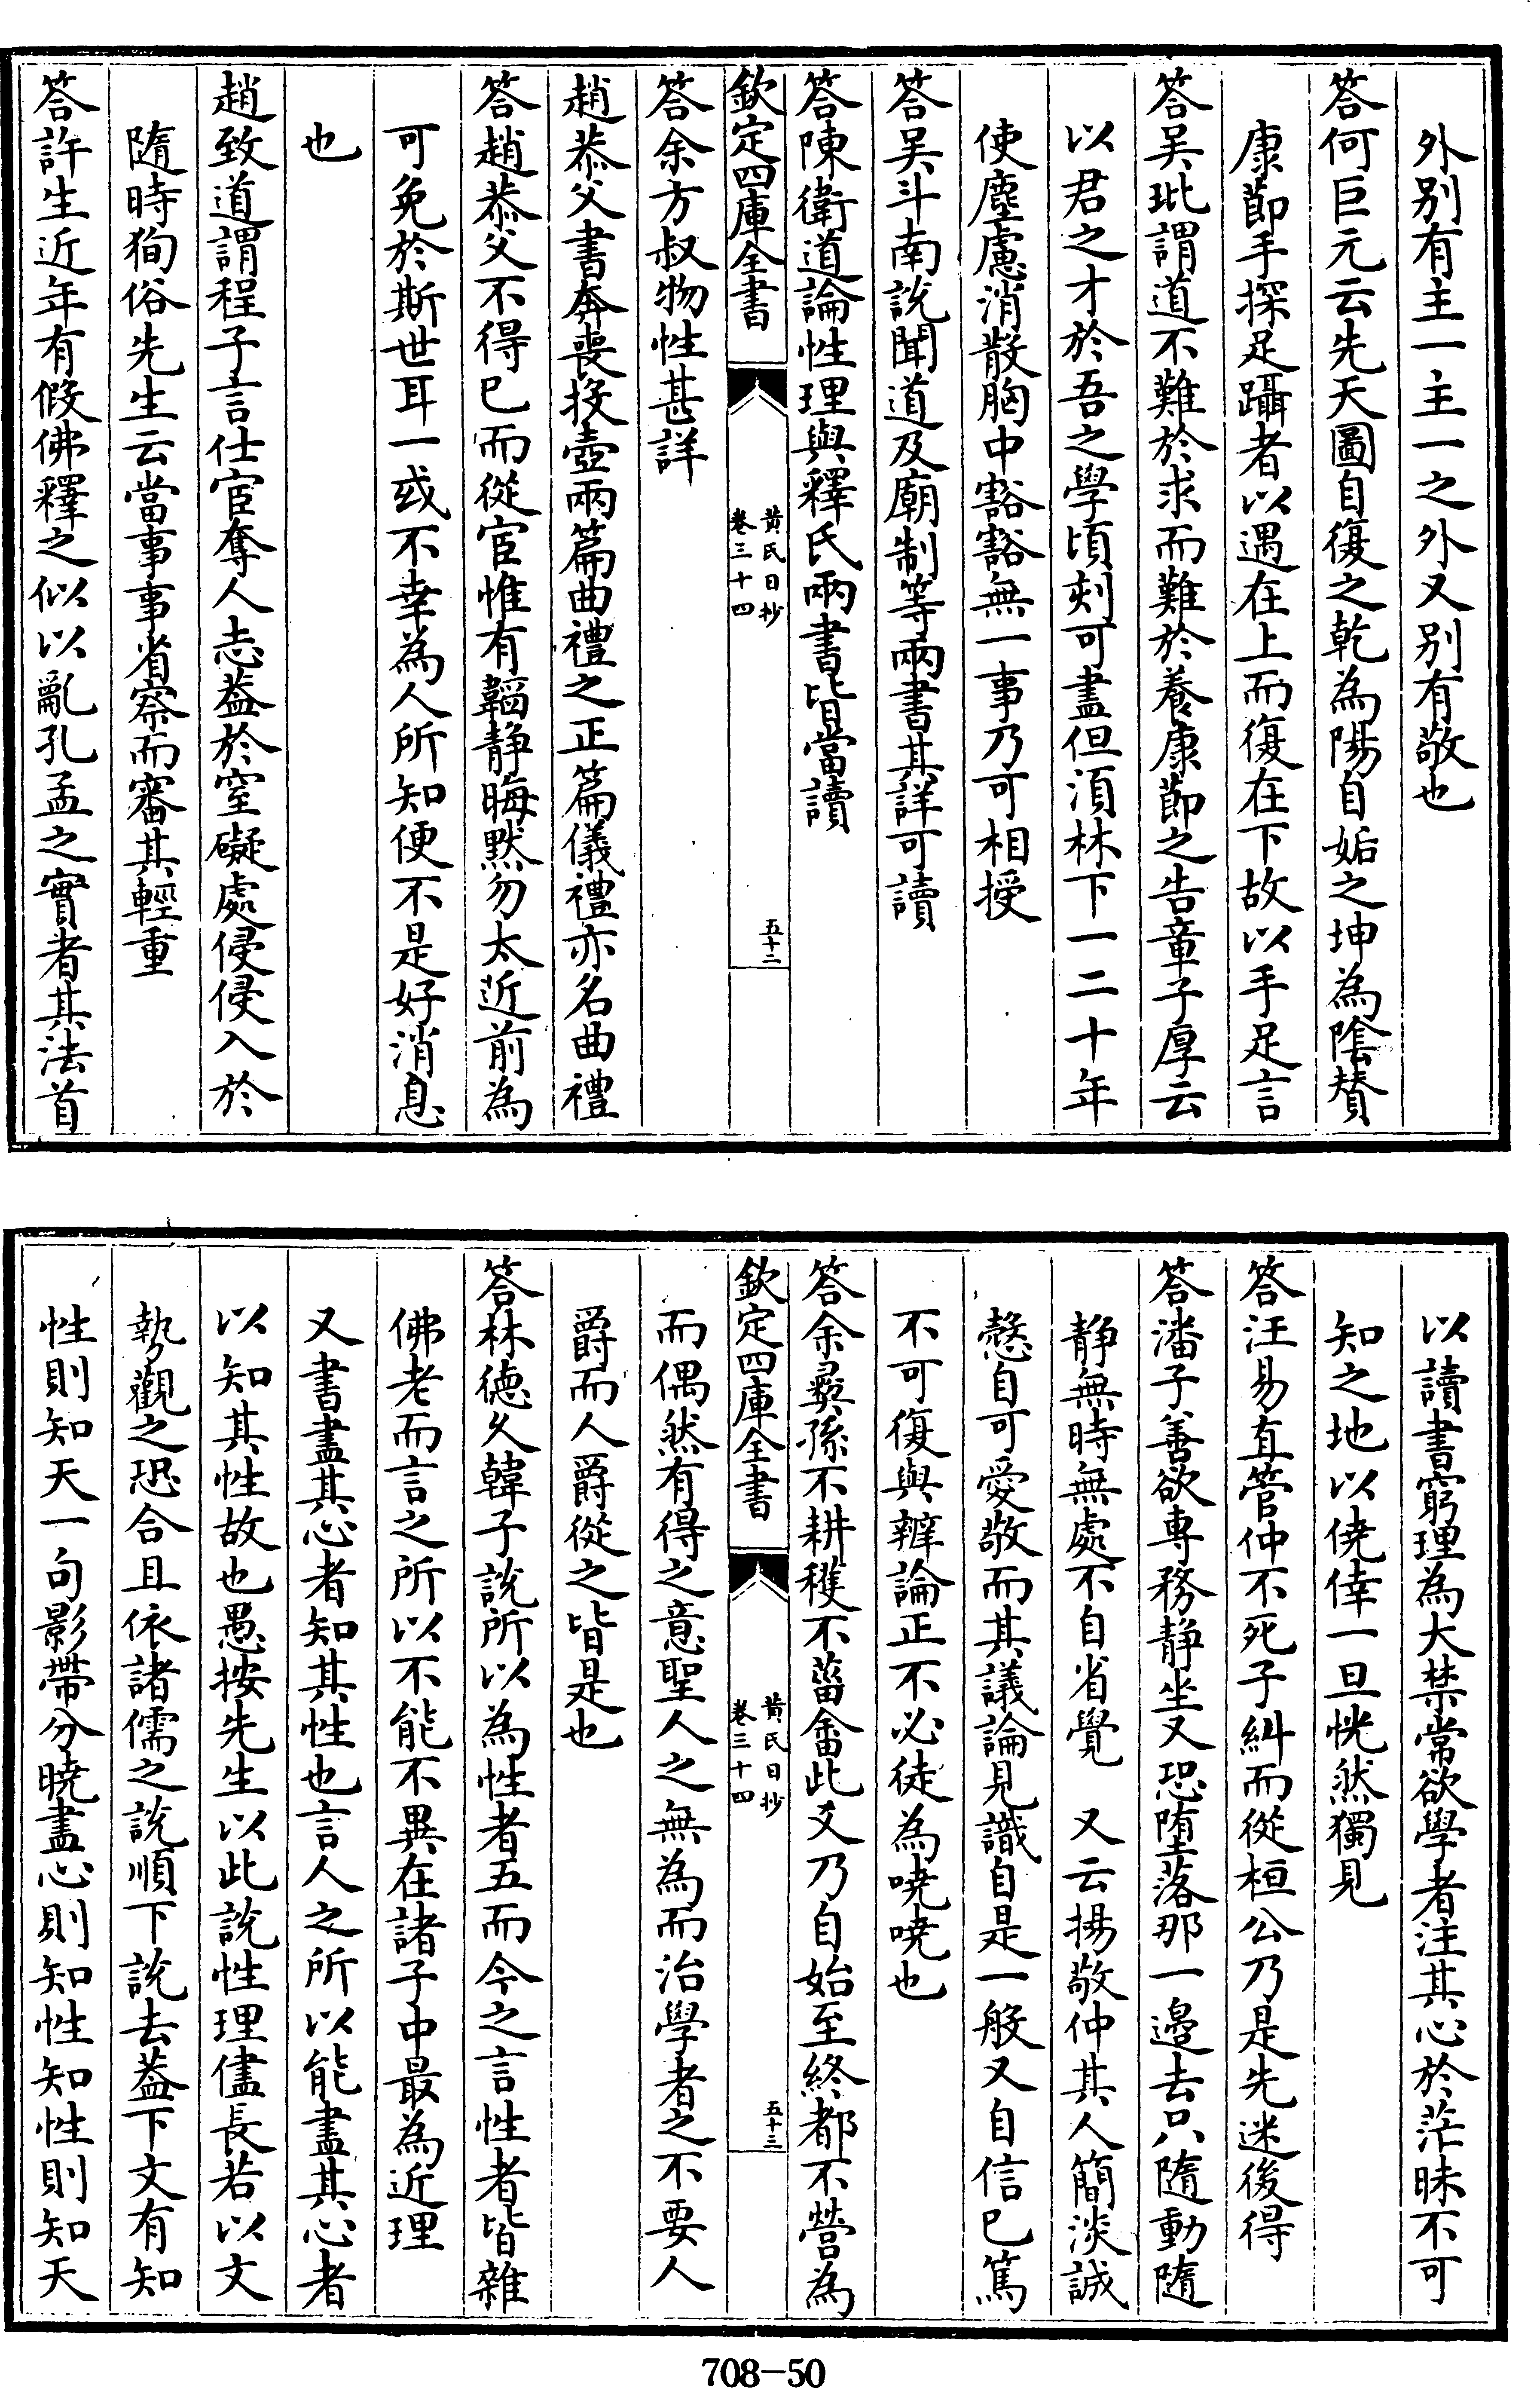 外別有主一主一之外又別有敬也
答何巨元云先天圖自復之乾為陽自姤之坤為陰賛
康節手探足躡者以遇在上而復在下故以手足言
答吴玭謂道不難於求而難於養康節之告章子厚云
以君之才於吾之學頃刻可盡但須林下一二十年
使塵慮消散胸中豁豁無一事乃可相授
答吴斗南說聞道及廟制等兩書其詳可讀
答陳衛道論性理與釋氏兩書皆當讀
欽定四庫全書
黄氏日抄
卷三十四
五十二
答余方叔物性甚詳
趙恭父書奔喪投壺兩篇曲禮之正篇儀禮亦名曲禮
答趙恭父不得已而從宦惟有韜静晦黙勿太近前為
可免於斯世耳一或不幸為人所知便不是好消息
也
趙致道謂程子言仕宦奪人志葢於窒礙處侵侵入於
隨時狥俗先生云當事事省察而審其輕重
答許生近年有假佛釋之似以亂孔孟之實者其法首
以讀書窮理為大禁常欲學者注其心於茫昧不可
知之地以僥倖一旦恍然獨見
答汪易直管仲不死子糾而從桓公乃是先迷後得
答潘子善欲専務静坐又恐墮落那一邉去只隨動隨
静無時無處不自省覺　又云揚敬仲其人簡淡誠
慤自可愛敬而其議論見識自是一般又自信已篤
不可復與辨論正不必徒為嘵嘵也
答余彛孫不耕穫不菑畬此爻乃自始至終都不營為
欽定四庫全書
黄氏日抄
卷三十四
五十三
而偶然有得之意聖人之無為而治學者之不要人
爵而人爵從之皆是也
答林徳久韓子說所以為性者五而今之言性者皆雜
佛老而言之所以不能不異在諸子中最為近理
又書盡其心者知其性也言人之所以能盡其心者
以知其性故也愚按先生以此說性理儘長若以文
勢觀之恐合且依諸儒之說順下說去葢下文有知
性則知天一句影帶分曉盡心則知性知性則知天
708-50